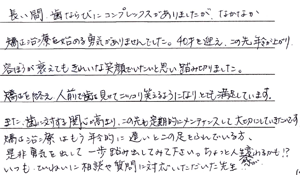 長い間、歯ならびにコンプレックスがありましたが、なかなか
矯正治療を始める勇気がありませんでした。40才を迎え、この先年が上がり
容ぼうが衰えてもきれいな笑顔でいたいと思い踏み切りました。
矯正を終え、人前で歯を見せてニッコリ笑えるようになりとても満足しています。
また、歯に対する関心の高まり、この先も定期的にメンテナンスして大切にしていきたいです
矯正治療はもう年令的に遅いと二の足をふんでいる方、
是非勇気を出して一歩踏み出してみて下さい。ちょっと人生変わるかも!?
いつもていねいに相談や質問に対応いただいた先生